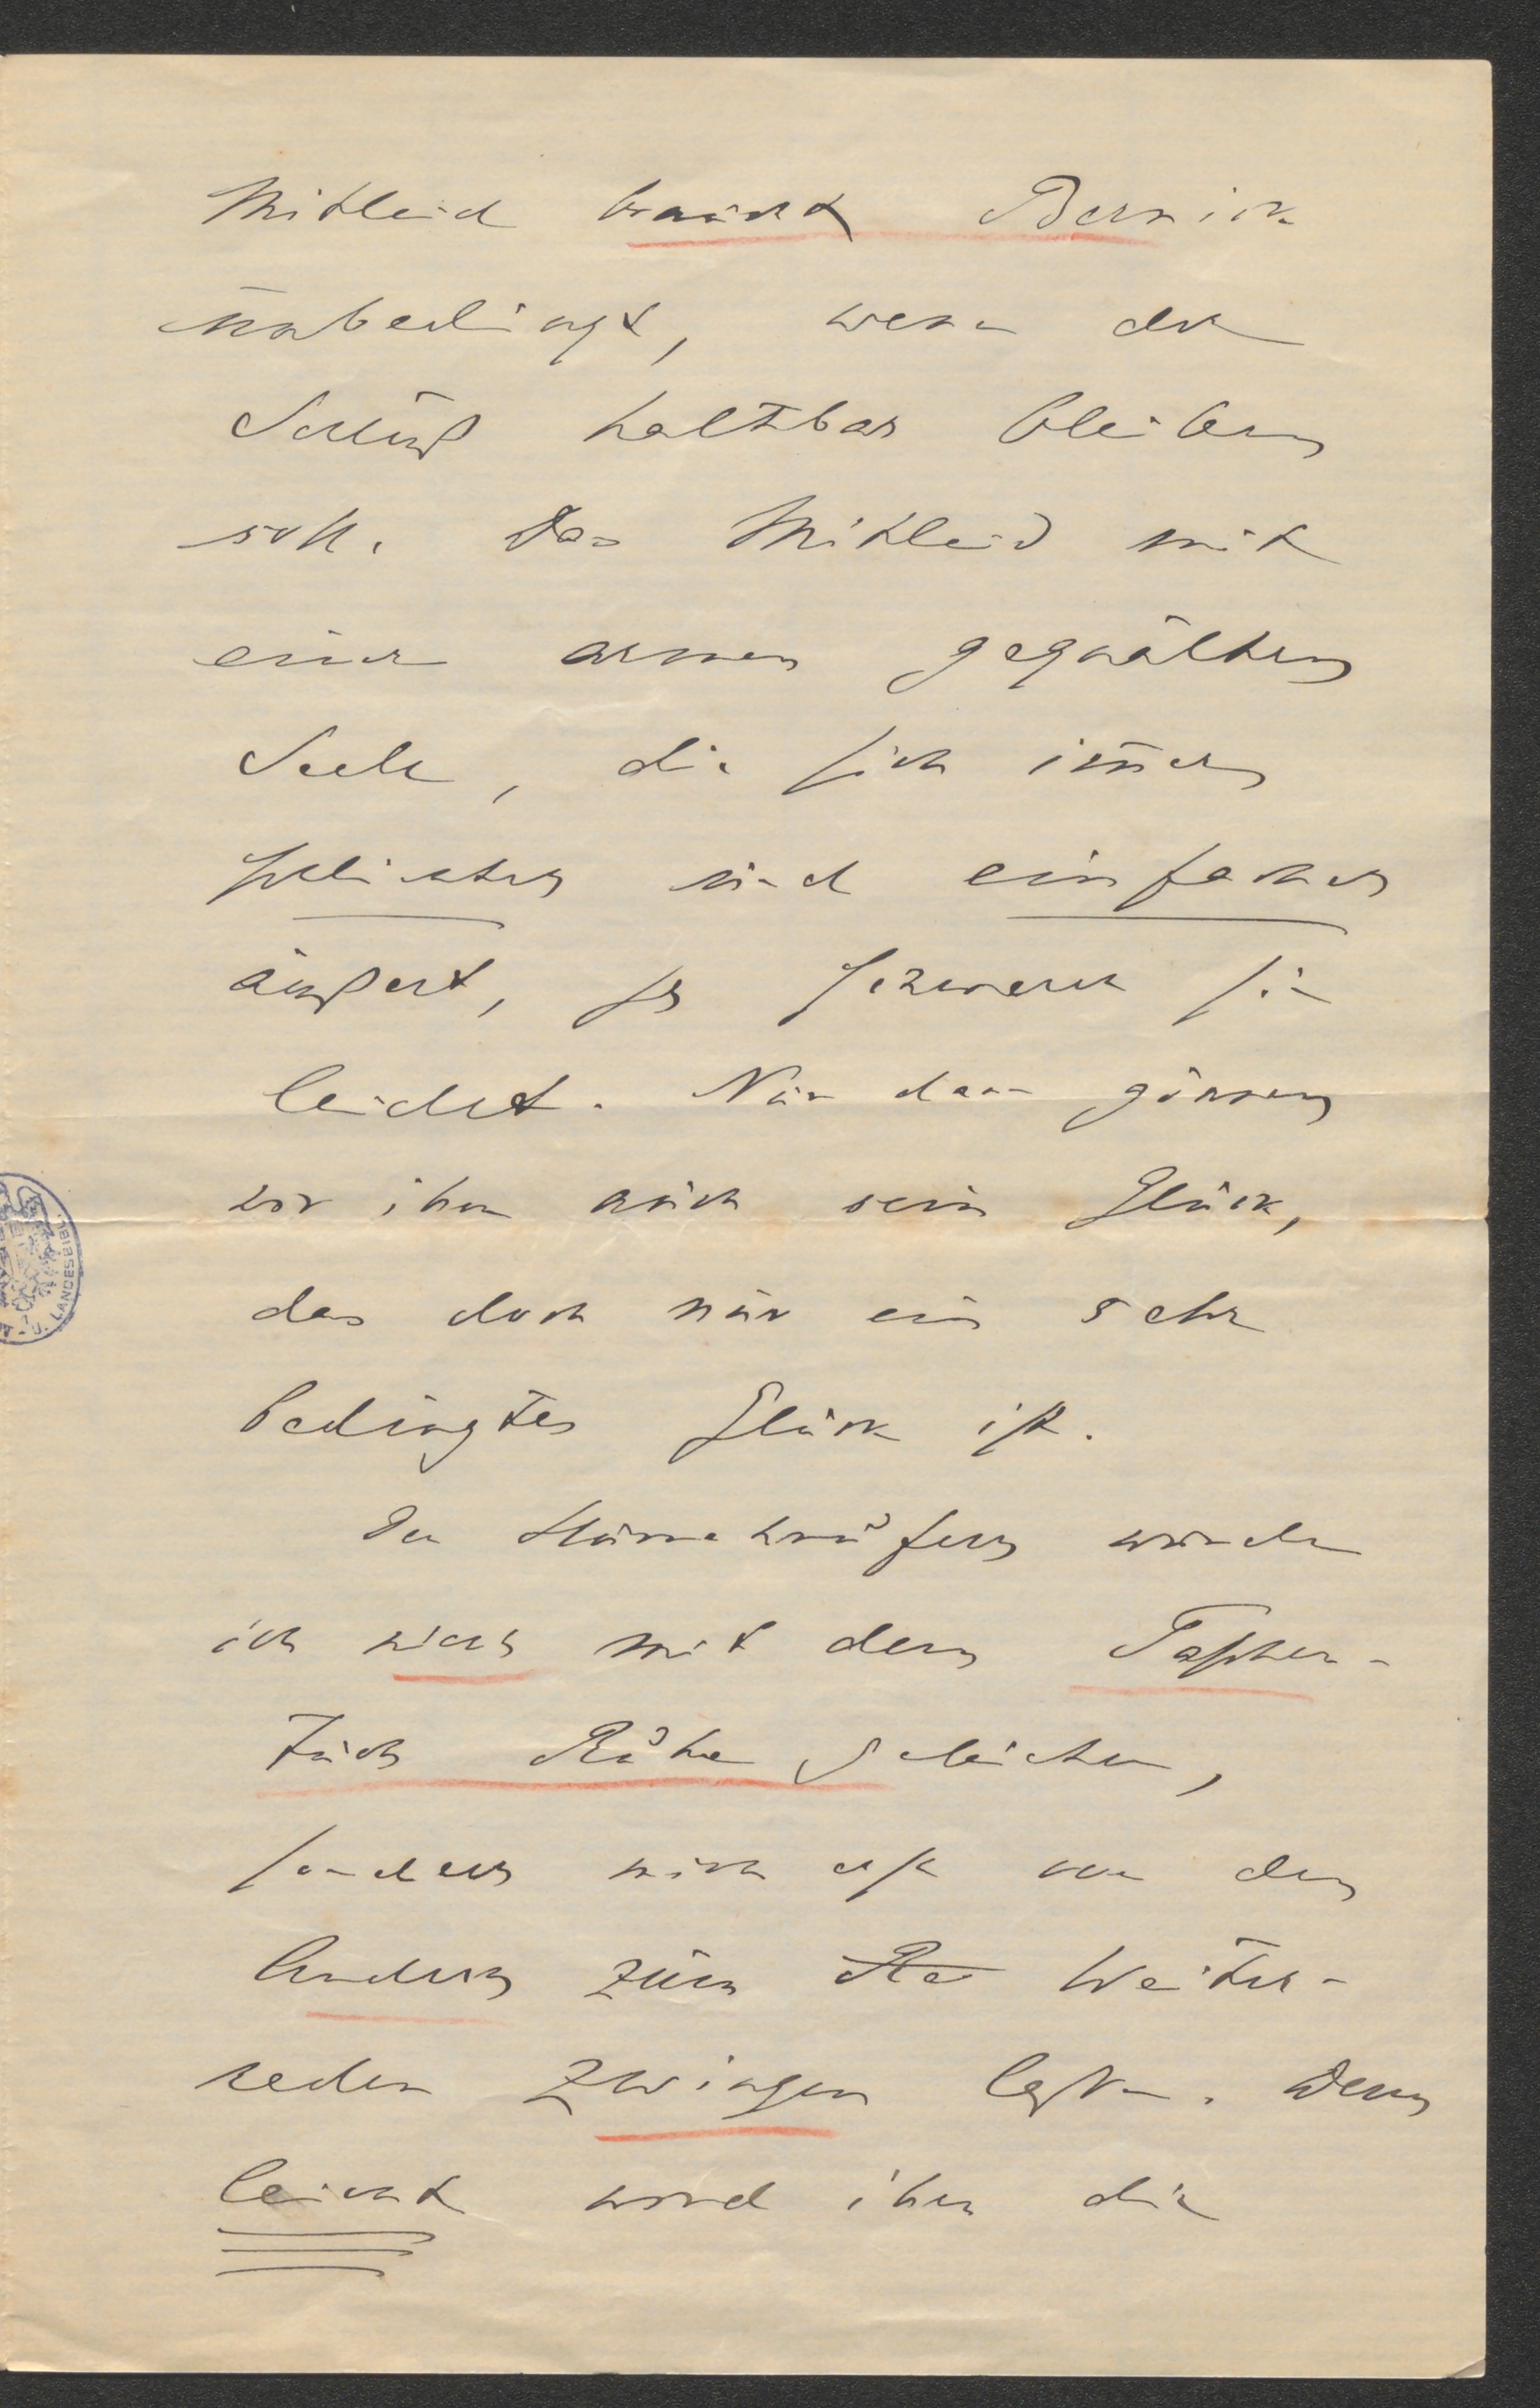 Mitleid braucht Bernick
unbedingt, wenn der
Schluß haltbar bleiben
soll. Das Mitleid mit
einer armen gequälten
Seele, die sich immer
schlichter und einfacher
äußert, je schwerer sie
leidet. Nur dann gönnen
wir ihm auch sein Glück,
das doch nur ein sehr
bedingtes Glück ist.
Den Hurrahrufern würde
ich nicht mit dem Taschen-
tuch Ruhe gebieten,
sondern mich erst von den
Andern zum Re Weiter-
reden zwingen lassen. Denn
leicht wird ihm die
LANDESBIBL.